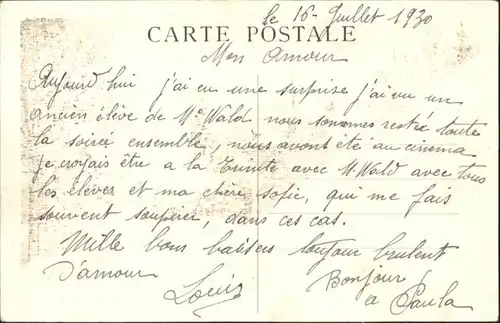 le 16 - Juillet 1930
CARTE POSTALE
Mon Amour
Aujourd hui j'ai eu une surprise j'ai vu un
ancien élève de Mr Wald nous sommes resté toute
la soirée ensemble, nous avont été au cinema
je croyais être a la Trinite avec M. Wald avec tous
les élever et ma chère sofie, qui me fais
souvent soupirer, dans ces cas.
Mille bons baisers toujour brulent
D'amour
Bonjour
Louis
a Paula